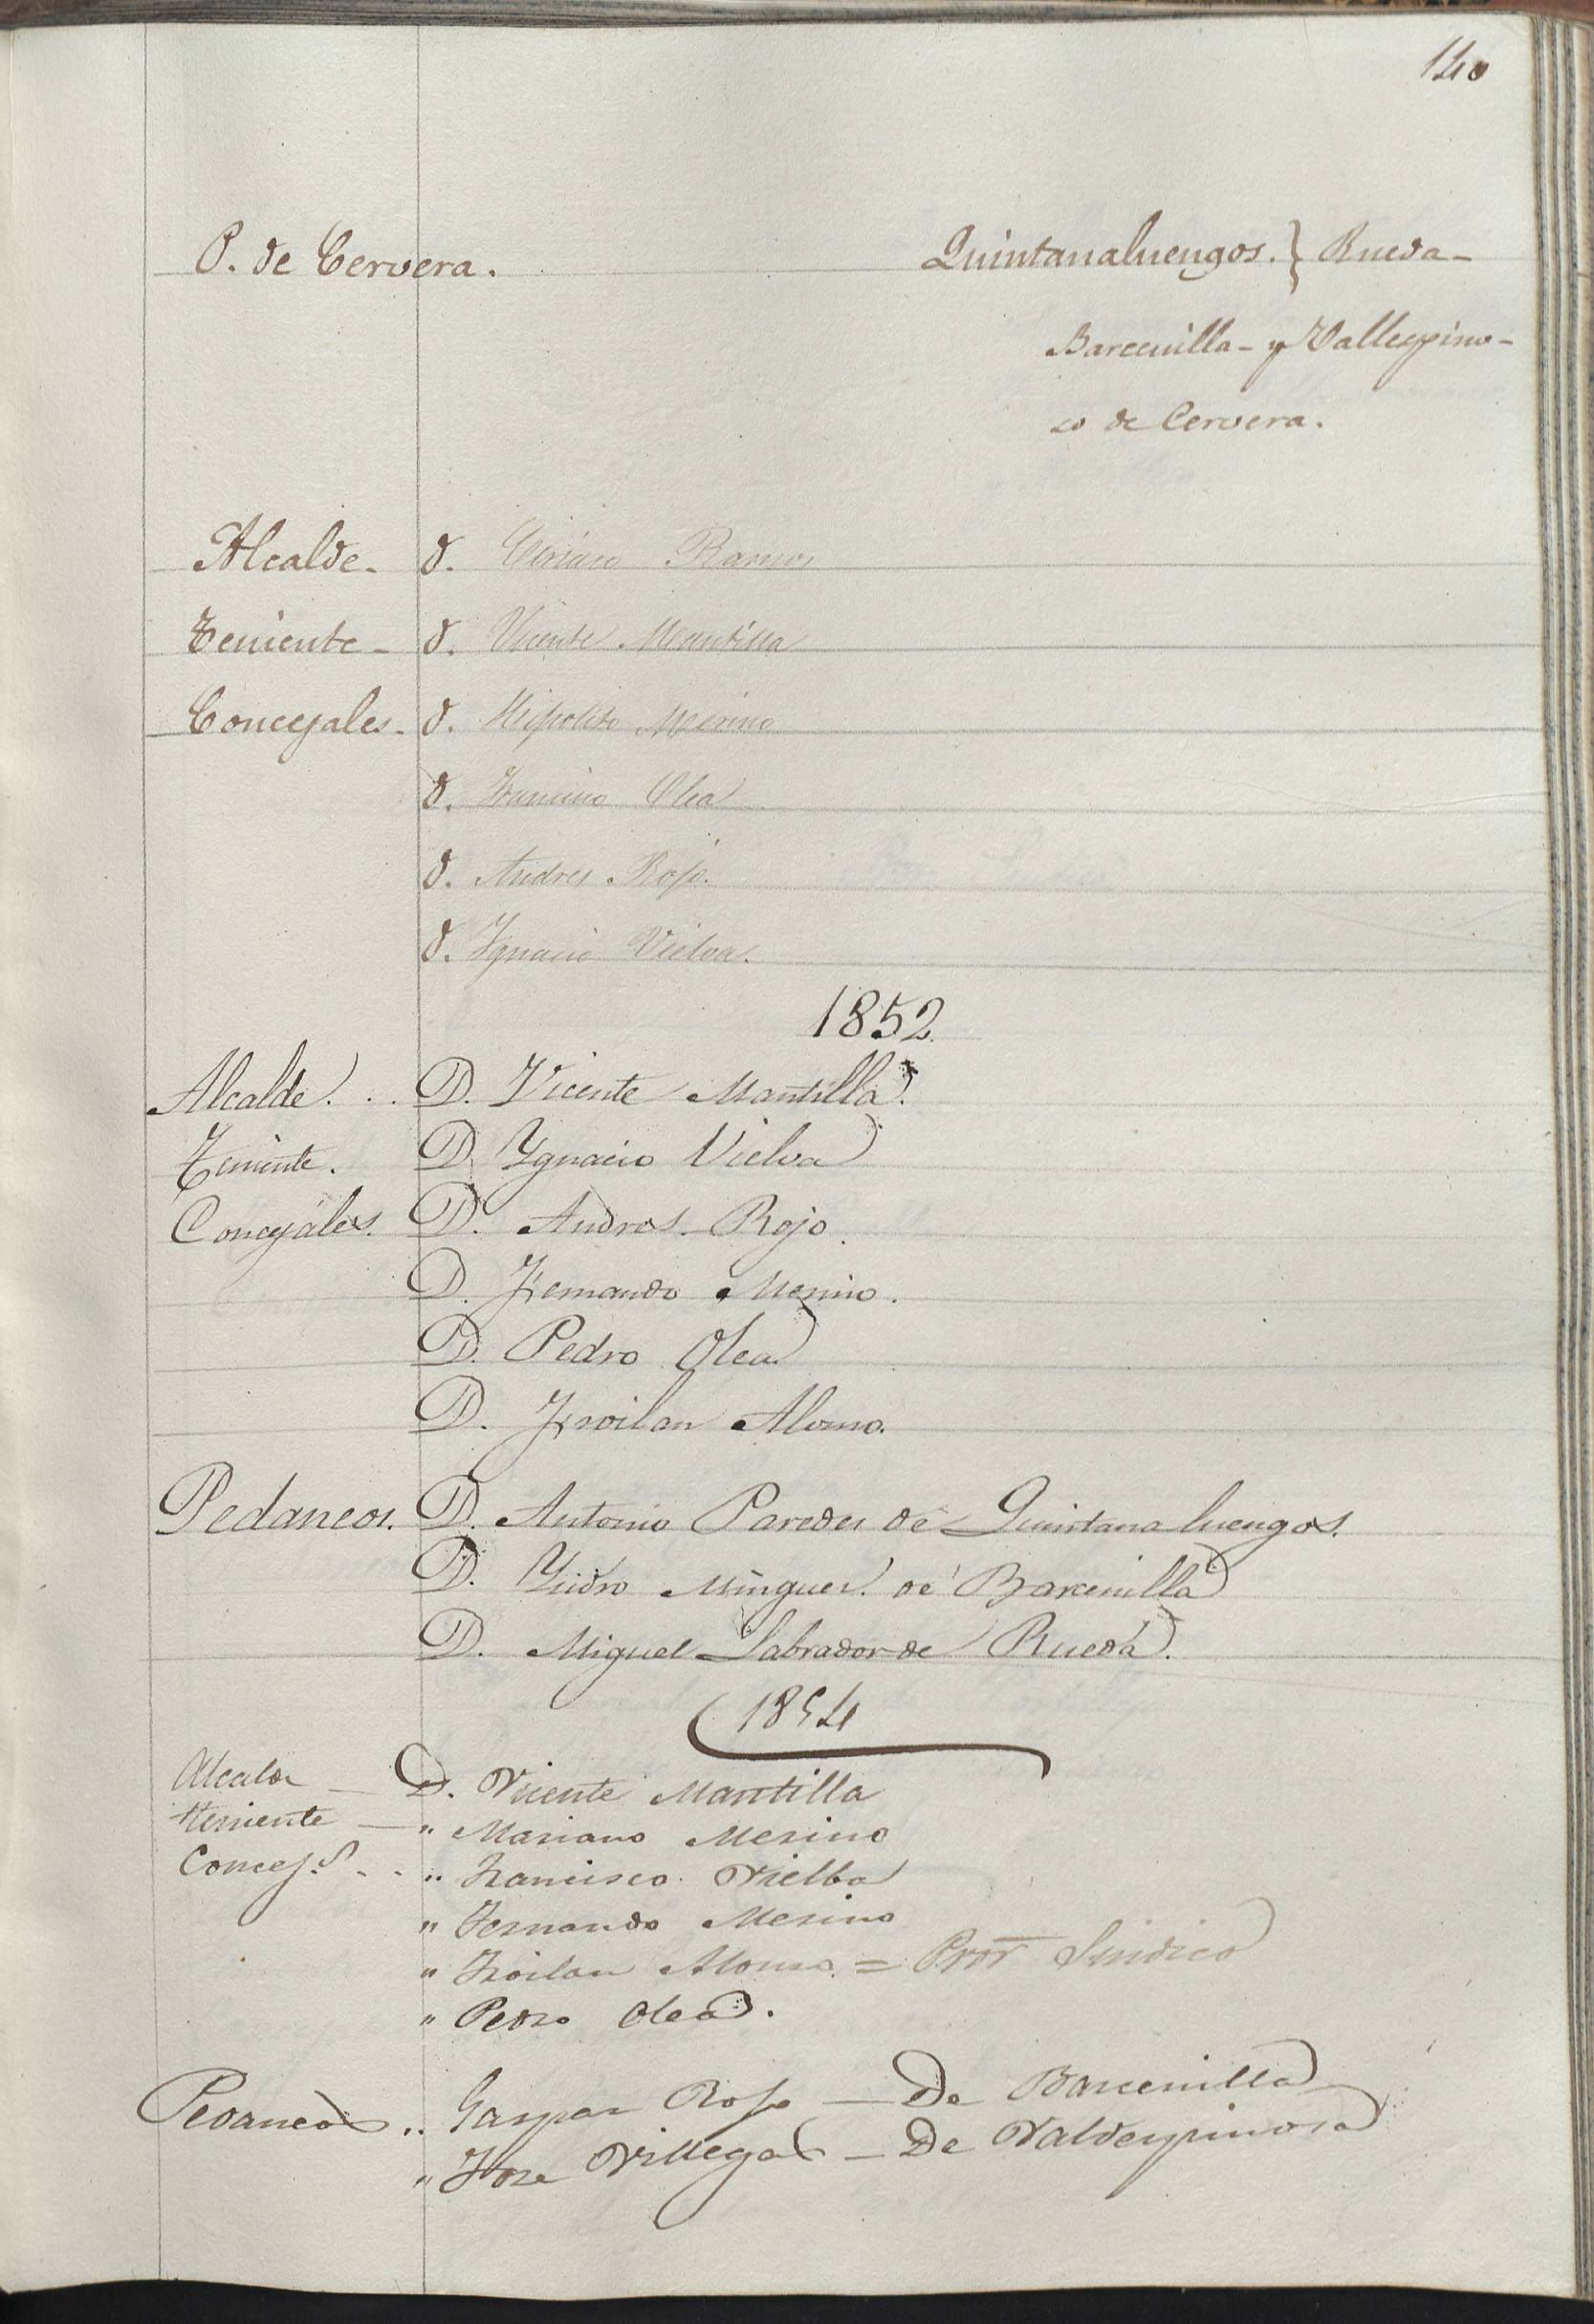 140
P. de Cervera.
Quintanaluengos. } Rueda-
Barcenilla - y Vallespino-
so de Cervera.
Alcalde- D. Ciriaco Ramos
Teniente- D. Vicente Mantilla
Concejales- D. Hipolito Merino
D. Olea
D. Andres Rojo.
D. Ygnacio Vielva.
1852
Alcalde. . . D. Vicente Mantilla.
Teniente. D. Ygnacio Vielva
Concejales. D. Andres Rojo.
D. Fernando Merino.
D. Pedro Olea
D. Froilan Alonso.
Pedaneos. D. Antonio Paredes de Quintanaluengos.
D. Ysidro Minguez de Barcenilla
D. Miguel Labrador de Rueda.
1854
Alcalde — D. Vicente Mantilla
teniente — " Mariano Merino
Concej.s - - " Francisco Vielba
" Fernando Merino
" Froilan Alonso. = Pror Sindico
" Pedro Olea.
Pedaneos .. Gaspar Rojo — De Barcenilla
" Jose Villegas — De Valdespinoso